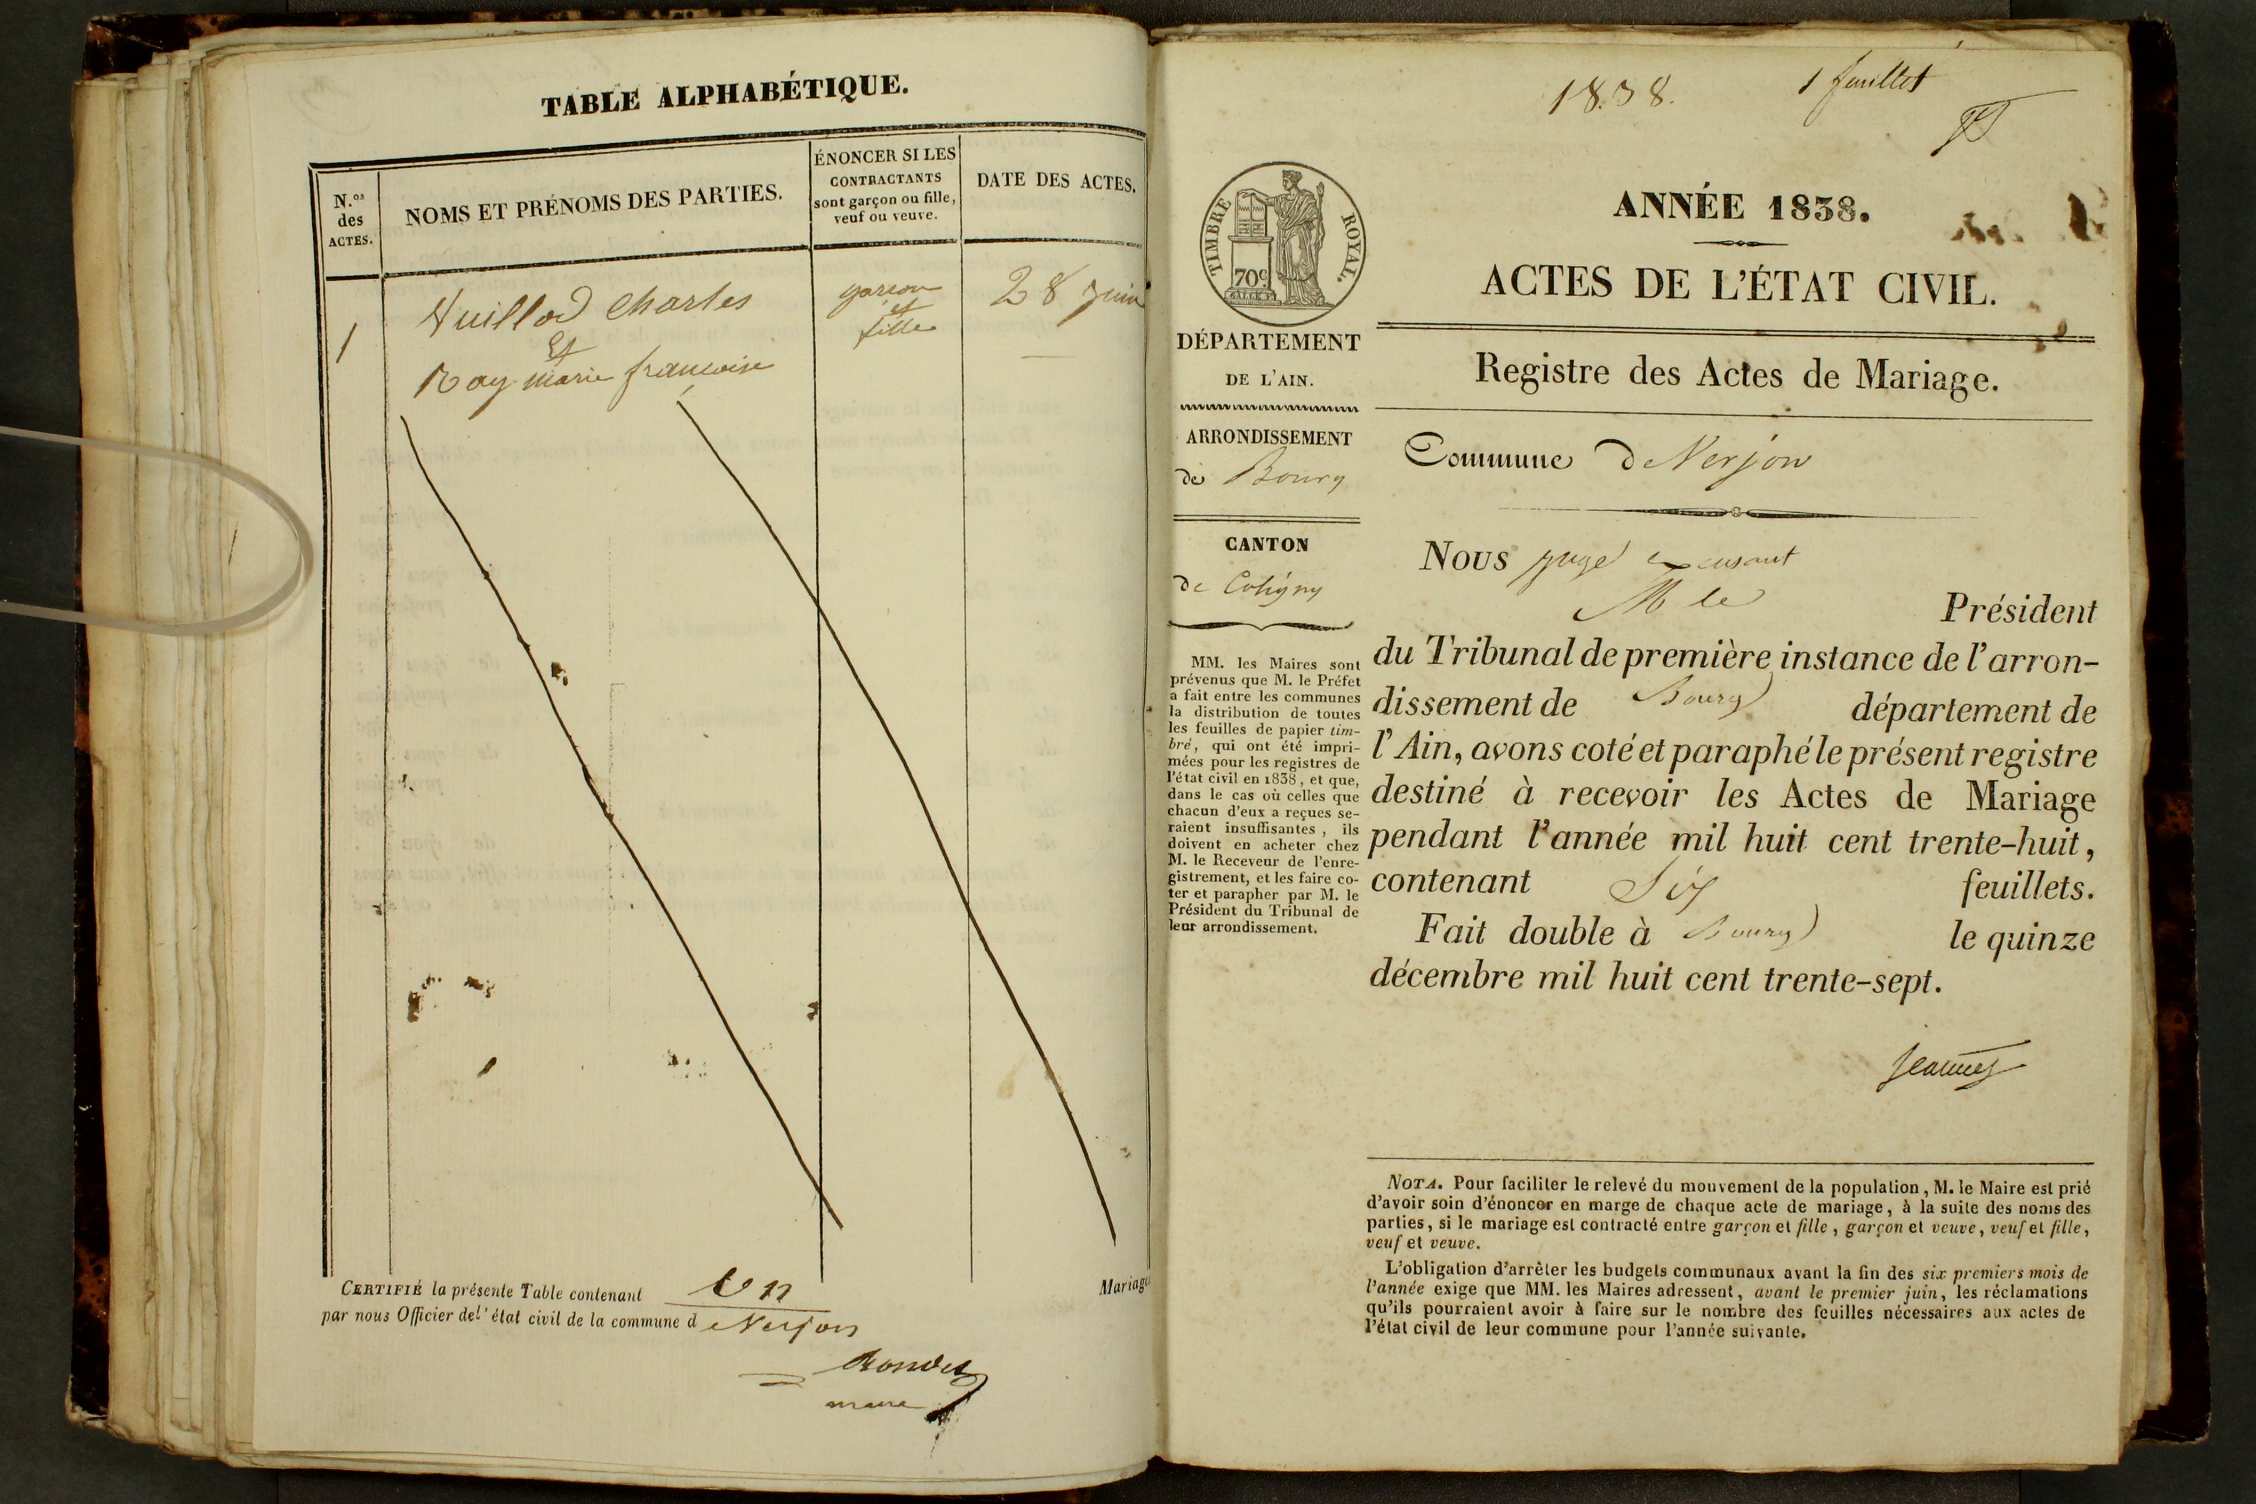 TABLE ALPHABÉTIQUE.
N.os des ACTES.
NOMS ET PRÉNOMS DES PARTIES.
ÉNONCER SI LES
CONTRACTANTS
sont garçon ou fille,
veuf ou veuve.
DATE DES ACTES.
1
Vuillod Charles
Et
Ray marie francoise
garcon
et
fille
28 juin
CERTIFIÉ la présente Table contenant Un Mariage
par nous Officier de l'état civil de la commune d Verjon
maire
1838.
1 feuillet
TIMBRE ROYAL.
70c
ANNÉE 1838.
ACTES DE L'ÉTAT CIVIL.
DÉPARTEMENT
DE L'AIN.
ARRONDISSEMENT
de Bourg
CANTON
de Coligny
MM. les Maires sont
prévenus que M. le Préfet
a fait entre les communes
la distribution de toutes
les feuilles de papier tim-
bré, qui ont été impri-
mées pour les registres de
l'état civil en 1838, et que,
dans le cas où celles que
chacun d'eux a reçues se-
raient insuffisantes, ils
doivent en acheter chez
M. le Receveur de l'enre-
gistrement, et les faire co-
ter et parapher par M. le
Président du Tribunal de
leur arrondissement.
Registre des Actes de Mariage.
Commune de Verjon
Nous juge excusant
M le Président
du Tribunal de première instance de l'arron-
dissement de Bourg département de
l'Ain, avons coté et paraphé le présent registre
destiné à recevoir les Actes de Mariage
pendant l'année mil huit cent trente-huit,
contenant Six feuillets.
Fait double à Bourg le quinze
décembre mil huit cent trente-sept.
NOTA. Pour faciliter le relevé du mouvement de la population, M. le Maire est prié
d'avoir soin d'énoncer en marge de chaque acte de mariage, à la suite des noms des
parties, si le mariage est contracté entre garçon et fille, garçon et veuve, veuf et fille,
veuf et veuve.
L'obligation d'arrêter les budgets communaux avant la fin des six premiers mois de
l'année exige que MM. les Maires adressent, avant le premier juin, les réclamations
qu'ils pourraient avoir à faire sur le nombre des feuilles nécessaires aux actes de
l'état civil de leur commune pour l'année suivante.